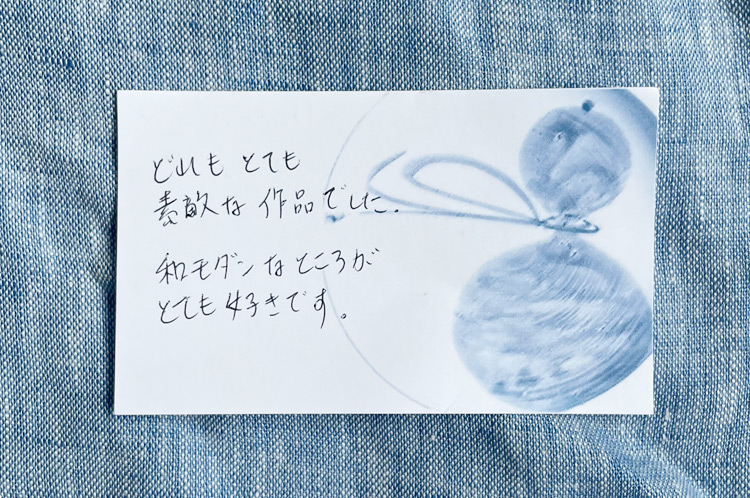 どれも とても
素敵な 作品でした.
和モダンなところが
とても好きです。